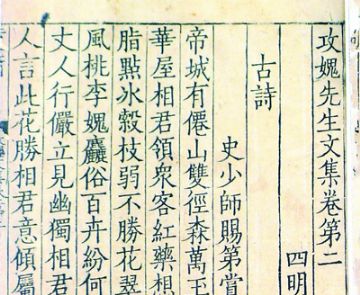 攻媿先生文集卷第二
四明
古詩
史少師賜第嘗
帝城有僊山雙徑森萬玉
華屋相君領衆客紅藥想
脂點冰縠枝弱不勝花翠
風桃李媿麤俗百卉紛何
丈人行儼立見幽獨相君
人言此花勝相君意傾屬